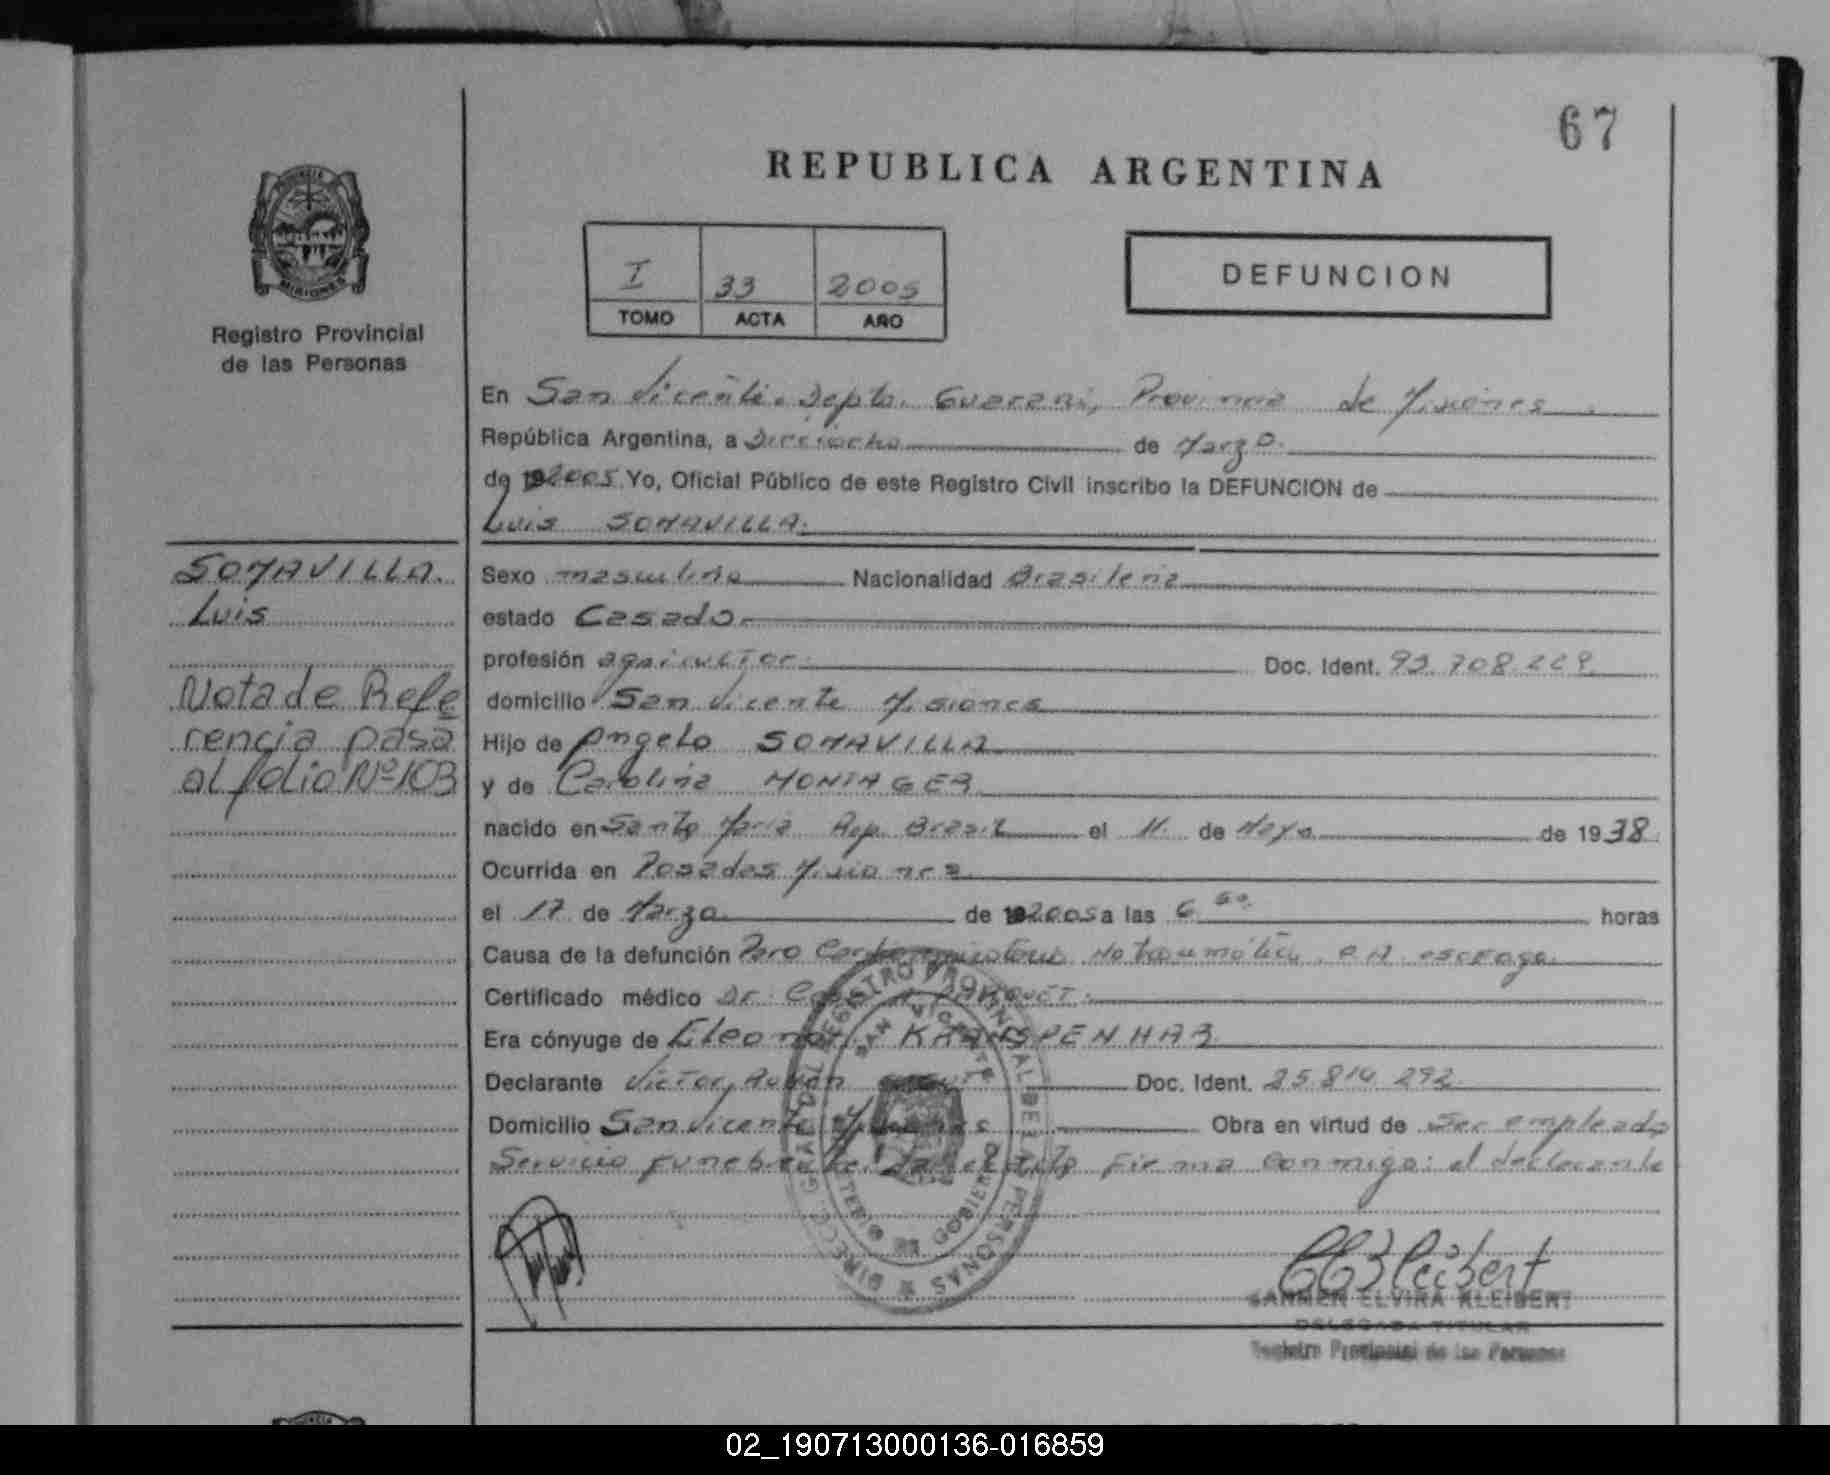 67
REPUBLICA ARGENTINA
PROVINCIA
MISIONES
Registro Provincial
de las Personas
I 33 2005
TOMO ACTA AÑO
DEFUNCION
En San Vicente. Depto. Guarani, Provincia de Misiones
República Argentina, a Dieciocho de Marzo.
de 192005 Yo, Oficial Público de este Registro Civil inscribo la DEFUNCION de
Luis SOMAVILLA.
SOMAVILLA.
Luis
Nota de Refe
rencia pasa
al folio Nº 103
Sexo masculino Nacionalidad Brasileña
estado Casado.
profesión agricultor. Doc. Ident. 92.708.229.
domicilio San Vicente Misiones
Hijo de Angelo SOMAVILLA
y de Carolina MONTAGER
nacido en Santa Maria Rep. Brasil el 11 de Mayo de 1938
Ocurrida en Posadas Misiones
el 17 de Marzo de 192005 a las 6 horas
Causa de la defunción Paro No traumático
Certificado médico Dr.
Era cónyuge de Eleonor KRANSPENHAR
Declarante Victor Doc. Ident. 25.814.292
Domicilio San Vicente Misiones Obra en virtud de Ser empleado
Servicio Funebre Firma conmigo: el declarante
DIRECC. GRAL. DEL REGISTRO PROVINCIAL DE LAS PERSONAS
SAN VICENTE
GOBIERNO
CARMEN ELVIRA KLEIBERT
DELEGADA TITULAR
Registro Provincial de las Personas
02_190713000136-016859